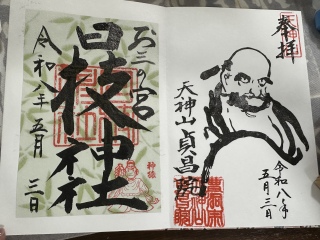 奉拝
天神山貞昌院
令和八年
五月三日
お三の宮
日枝神社
令和八年五月三日
神猿